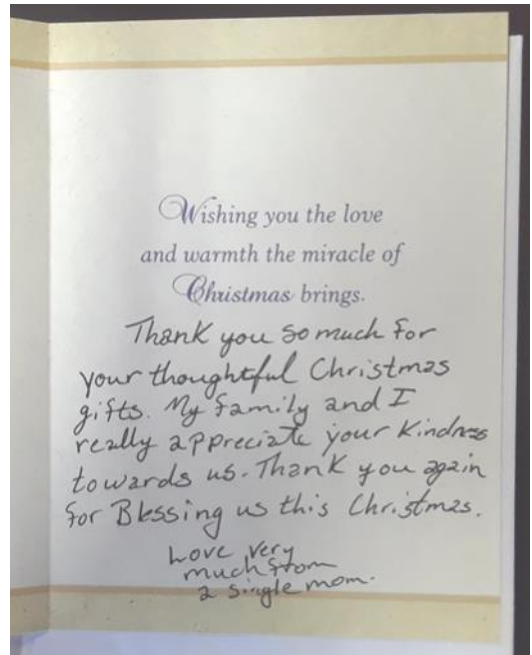 Wishing you the love
and warmth the miracle of
Christmas brings.
Thank you so much for
your thoughtful Christmas
gifts. My family and I
really appreciate your kindness
towards us. Thank you again
for Blessing us this Christmas.
Love very
much from
a single mom.